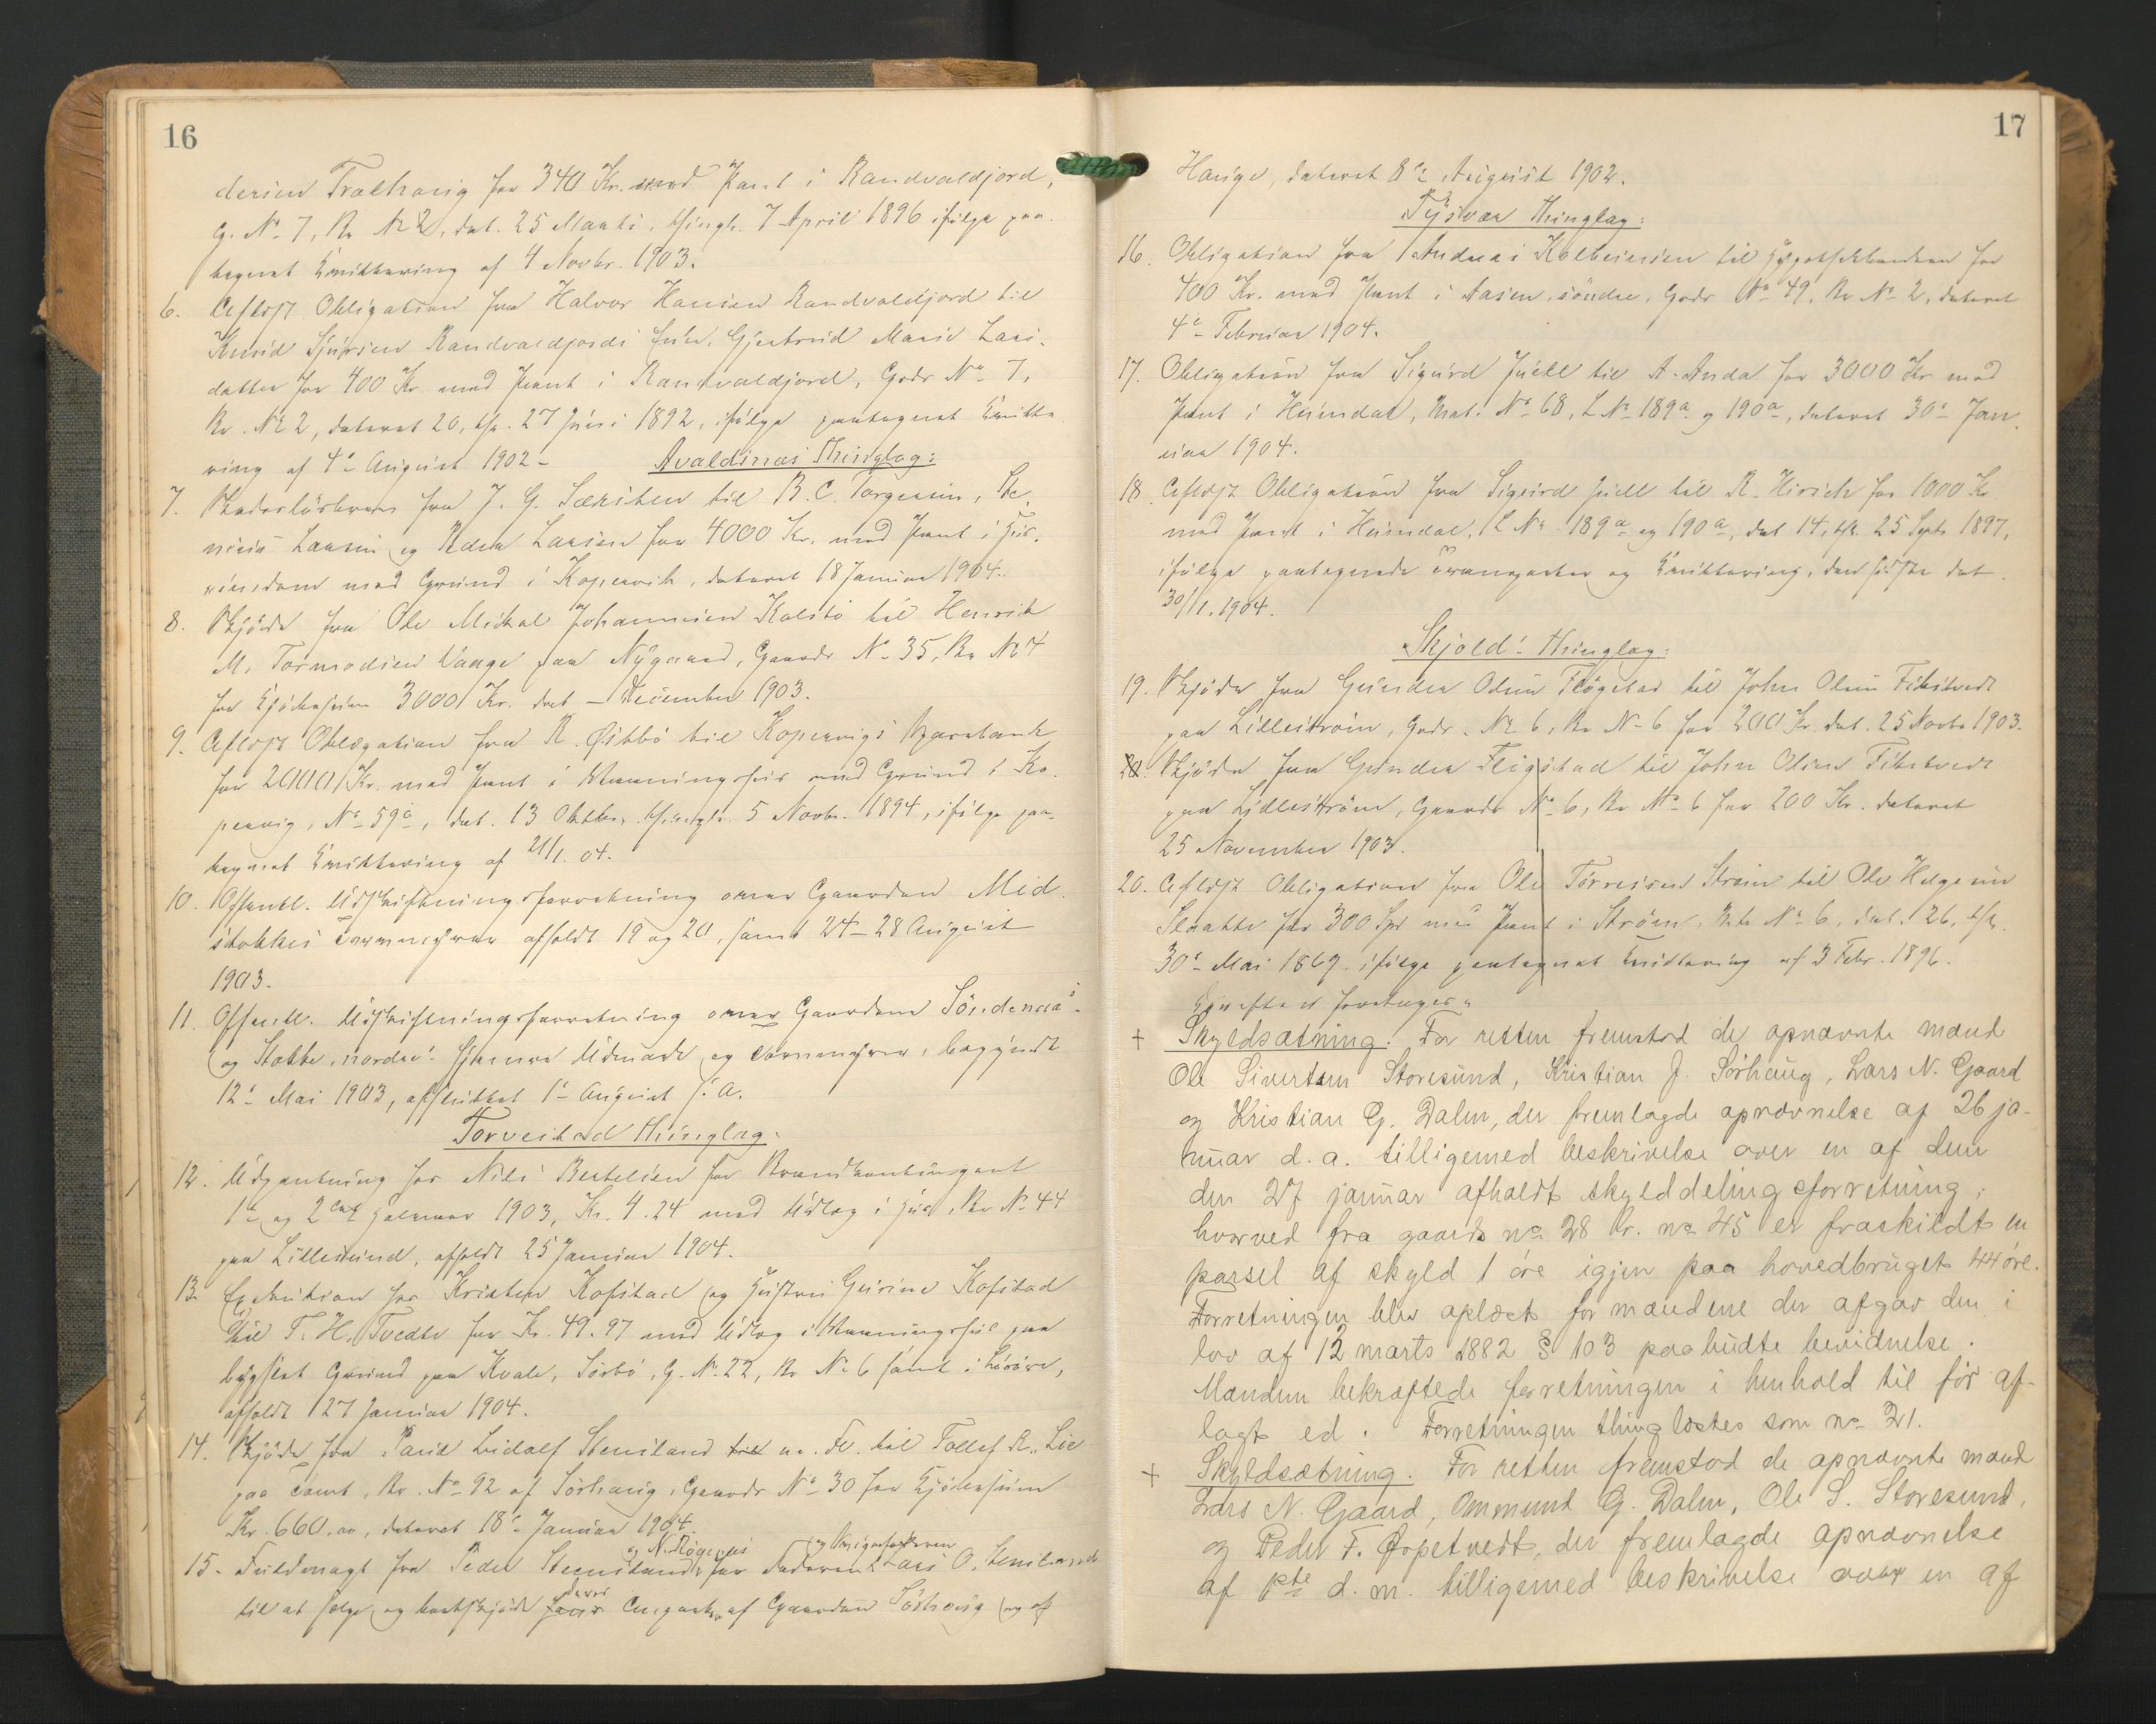 16
dersen Tralhaug for 340 Kr. med Pant i Randvaldjord,
G. No 7, Br. No 2, dat. 25 Marts, thingl. 7 April 1896 ifølge paa-
tegnet Kvittering af 4 Novbr. 1903.
6. Aflyst Obligation fra Halvor Hansen Randvaldjord til
Knud Sjursen Randvaldjords Enke, Gjertrud Marie Lars-
datter for 400 Kr. med Pant i Randvaldjord, Grdr No 7,
Br. No 2, dateret 20, thl. 27 Juni 1892, ifølge paategnet Kvitte-
ring af 4de August 1902 –
Avaldsnes Thinglag:
7. Skadesløsbrev fra J. G. Særisten til B. C. Torgersen,
Larsen og Peder Larsen for 4000 Kr. med Pant i
eiendom med Grund i Kopervik, dateret 18 Januar 1904.
8. Skjøde fra Ole Mikal Johannesen Kalstø til Henrik
M. Tormodsen Vaage paa Nygaard, Gaards No 35, Br. No 4
for Kjøbesum 3000 Kr. dat – December 1903.
9. Aflyst Obligation fra R. Østbø til Kopervigs Sparebank
for 2000 Kr. med Pant i Vaaningshus med Grund i Ko-
pervig, No 59a, dat. 13 Oktbr., thingl. 5 Novbr. 1894, ifølge paa-
tegnet Kvittering af 21/1. 04.
10. Offentl. Udskiftningsforretning over Gaarden Mid-
stokkes afholdt 19 og 20, samt 24 – 28 August
1903.
11. Offentl. Udskiftningsforretning over Gaardene Søndenaa
og Stokke, nordre's Udmark og begyndt
12te Mai 1903, afsluttet 1te August s. A.
Torvestad Thinglag:
12. Udpantning hos Nils Bertelsen for Brandkontingent
1ste og 2det Halvaar 1903, Kr. 4.24 med Udlæg i Hus, Br. No 44
paa Lillesund, afholdt 25 Januar 1904.
13. Exekution hos Kristen Kofstad og Hustru Gurine Kofstad
til T. H. Tvedte for Kr. 49.97 med Udlæg i Vaaningshus paa
bygslet Grund paa Kvale, Sørbø, G. No 22, Br. No 6 samt i Løsøre,
afholdt 27 Januar 1904.
14. Skjøde fra Paul Lidalf Stensland til m. Fl. til Tollef R. Lie
paa Tomt, Br. No 92 af Sørhaug, Gaards No 30 for Kjøbesum
Kr. 660.00, dateret 18de Januar 1904.
15. Fuldmagt fra Peder Steensland for Faderen Lars O. Stensland
til at sælge og udskjøde Engparter af Gaarden Sørhaug og af
17
Hauge, dateret 8de August 1902.
Tysvær Thinglag:
16. Obligation fra Andreas Kolbeinsen til Hypothekbanken for
400 Kr. med Pant i Aasen, søndre, Grdr No 49, Br. No 2, dateret
4de Februar 1904.
17. Obligation fra Sigurd Juell til A. Anda for 3000 Kr. med
Pant i Heimdal, Mat. No 68, L. No 189a og 190a, dateret 30te Jan-
uar 1904.
18. Aflyst Obligation fra Sigurd Juell til R. Hirsch for 1000 Kr
med Pant i Heimdal, L. No 189a og 190a, dat 14, thl. 25 Septr 1897,
ifølge paategnede Transporter og Kvittering, den sidste dat.
30/1. 1904.
Skjold's Thinglag:
19. Skjøde fra Gunder Olsen Fløgstad til John Olsen Fikstvedt
paa Lillestrøm, Grdr. No 6, Br. No 6 for 200 Kr. dat. 25 Novbr 1903.
20. Skjøde fra Gunder Fløgstad til John Olsen Fikstvedt
paa Lillestrøm, Gaards No 6, Br. No 6 for 200 Kr. dateret
25 November 1903.
20. Aflyst Obligation fra Ole Tørresen Strøm til Ole Helgesen
Slaatte for 300 Spd med Pant i Strøm, Mtr No 6, dat. 26, thl.
30te Mai 1867 ifølge paategnet Kvittering af 3 Febr. 1896.
Derefter foretoges:
+ Skyldsætning. For retten fremstod de opnævnte mænd
Ole Sivertsen Storesund, Kristian J. Sørhaug, Lars N. Gaard
og Kristian G. Dalen, der fremlagde opnævnelse af 26 ja-
nuar d. a. tilligemed beskrivelse over en af dem
den 27 januar afholdt skylddelingsforretning,
hvorved fra gaards no 28 br. no 45 er fraskildt en
parsel af skyld 1 øre igjen paa hovedbruget 44 øre.
Forretningen blev oplæst for mændene der afgav den i
lov af 12 marts 1882 § 103 paabudte bevidnelse.
Mændene bekræftede forretningen i henhold til før af-
lagt ed. Forretningen thinglæstes som no 21.
+ Skyldsætning. For retten fremstod de opnævnte mænd
Lars N. Gaard, Ommund G. Dalen, Ole S. Storesund,
og Peder F. Ørpetvedt, der fremlagde opnævnelse
af 1ste d. m. tilligemed beskrivelse over en af